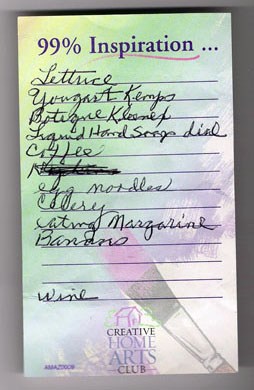 99% Inspiration ...
Lettuce
Yougart Kemps
Botique Kleenex
Liquid Hand Soap dial
Coffee
egg noodles
Celery
eating Margarine
Bananas
Wine
CREATIVE
HOME
ARTS
CLUB